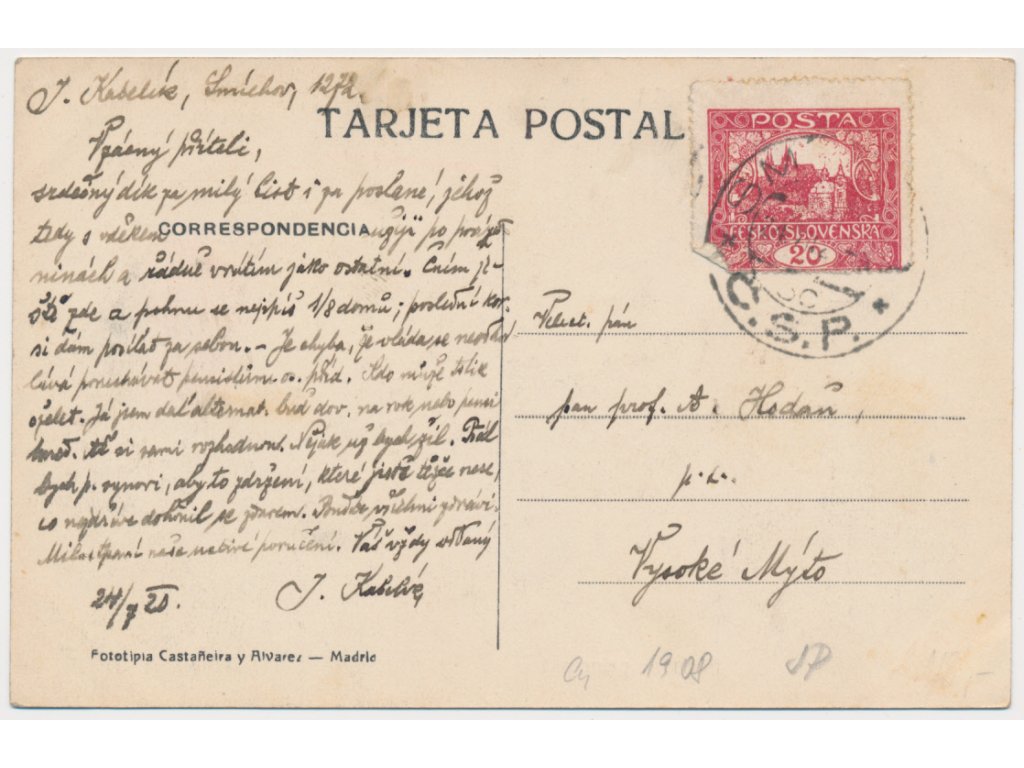 J. Kabelík, Smíchov, 1272.
TARJETA POSTAL
Vzácný příteli,
srdečný dík za milý list i za poslané, jehož
tedy s vděkem užiji po prázd-
CORRESPONDENCIA
ninách a řádně vrátím jako ostatní. Čním je-
ště zde a pohnu se nejspíš 1/8 domů; poslední kor.
si dám poslat za sebou. – Je chyba, že vláda se
penisi
Kdo může tolik
oželet. Já jsem dal alternat. buď dov. na rok nebo pensi
hned. Ať si sami rozhodnou. Nějak už bych žil. Přál
bych p. synovi, aby to zdržení, které jistě těžce nese,
co nejdříve dohonil se zdarem. Buďte všichni zdrávi.
Milostpaní naše uctivé poručení. Váš vždy oddaný
24/7 20. J. Kabelík
Fototipia Castañeira y Alvarez — Madrid
POSTA
ČESKO-SLOVENSKÁ
20
Č.S.P.
Velect. pán
pan prof. A. Hodaň,
p. t.
Vysoké Mýto
1908